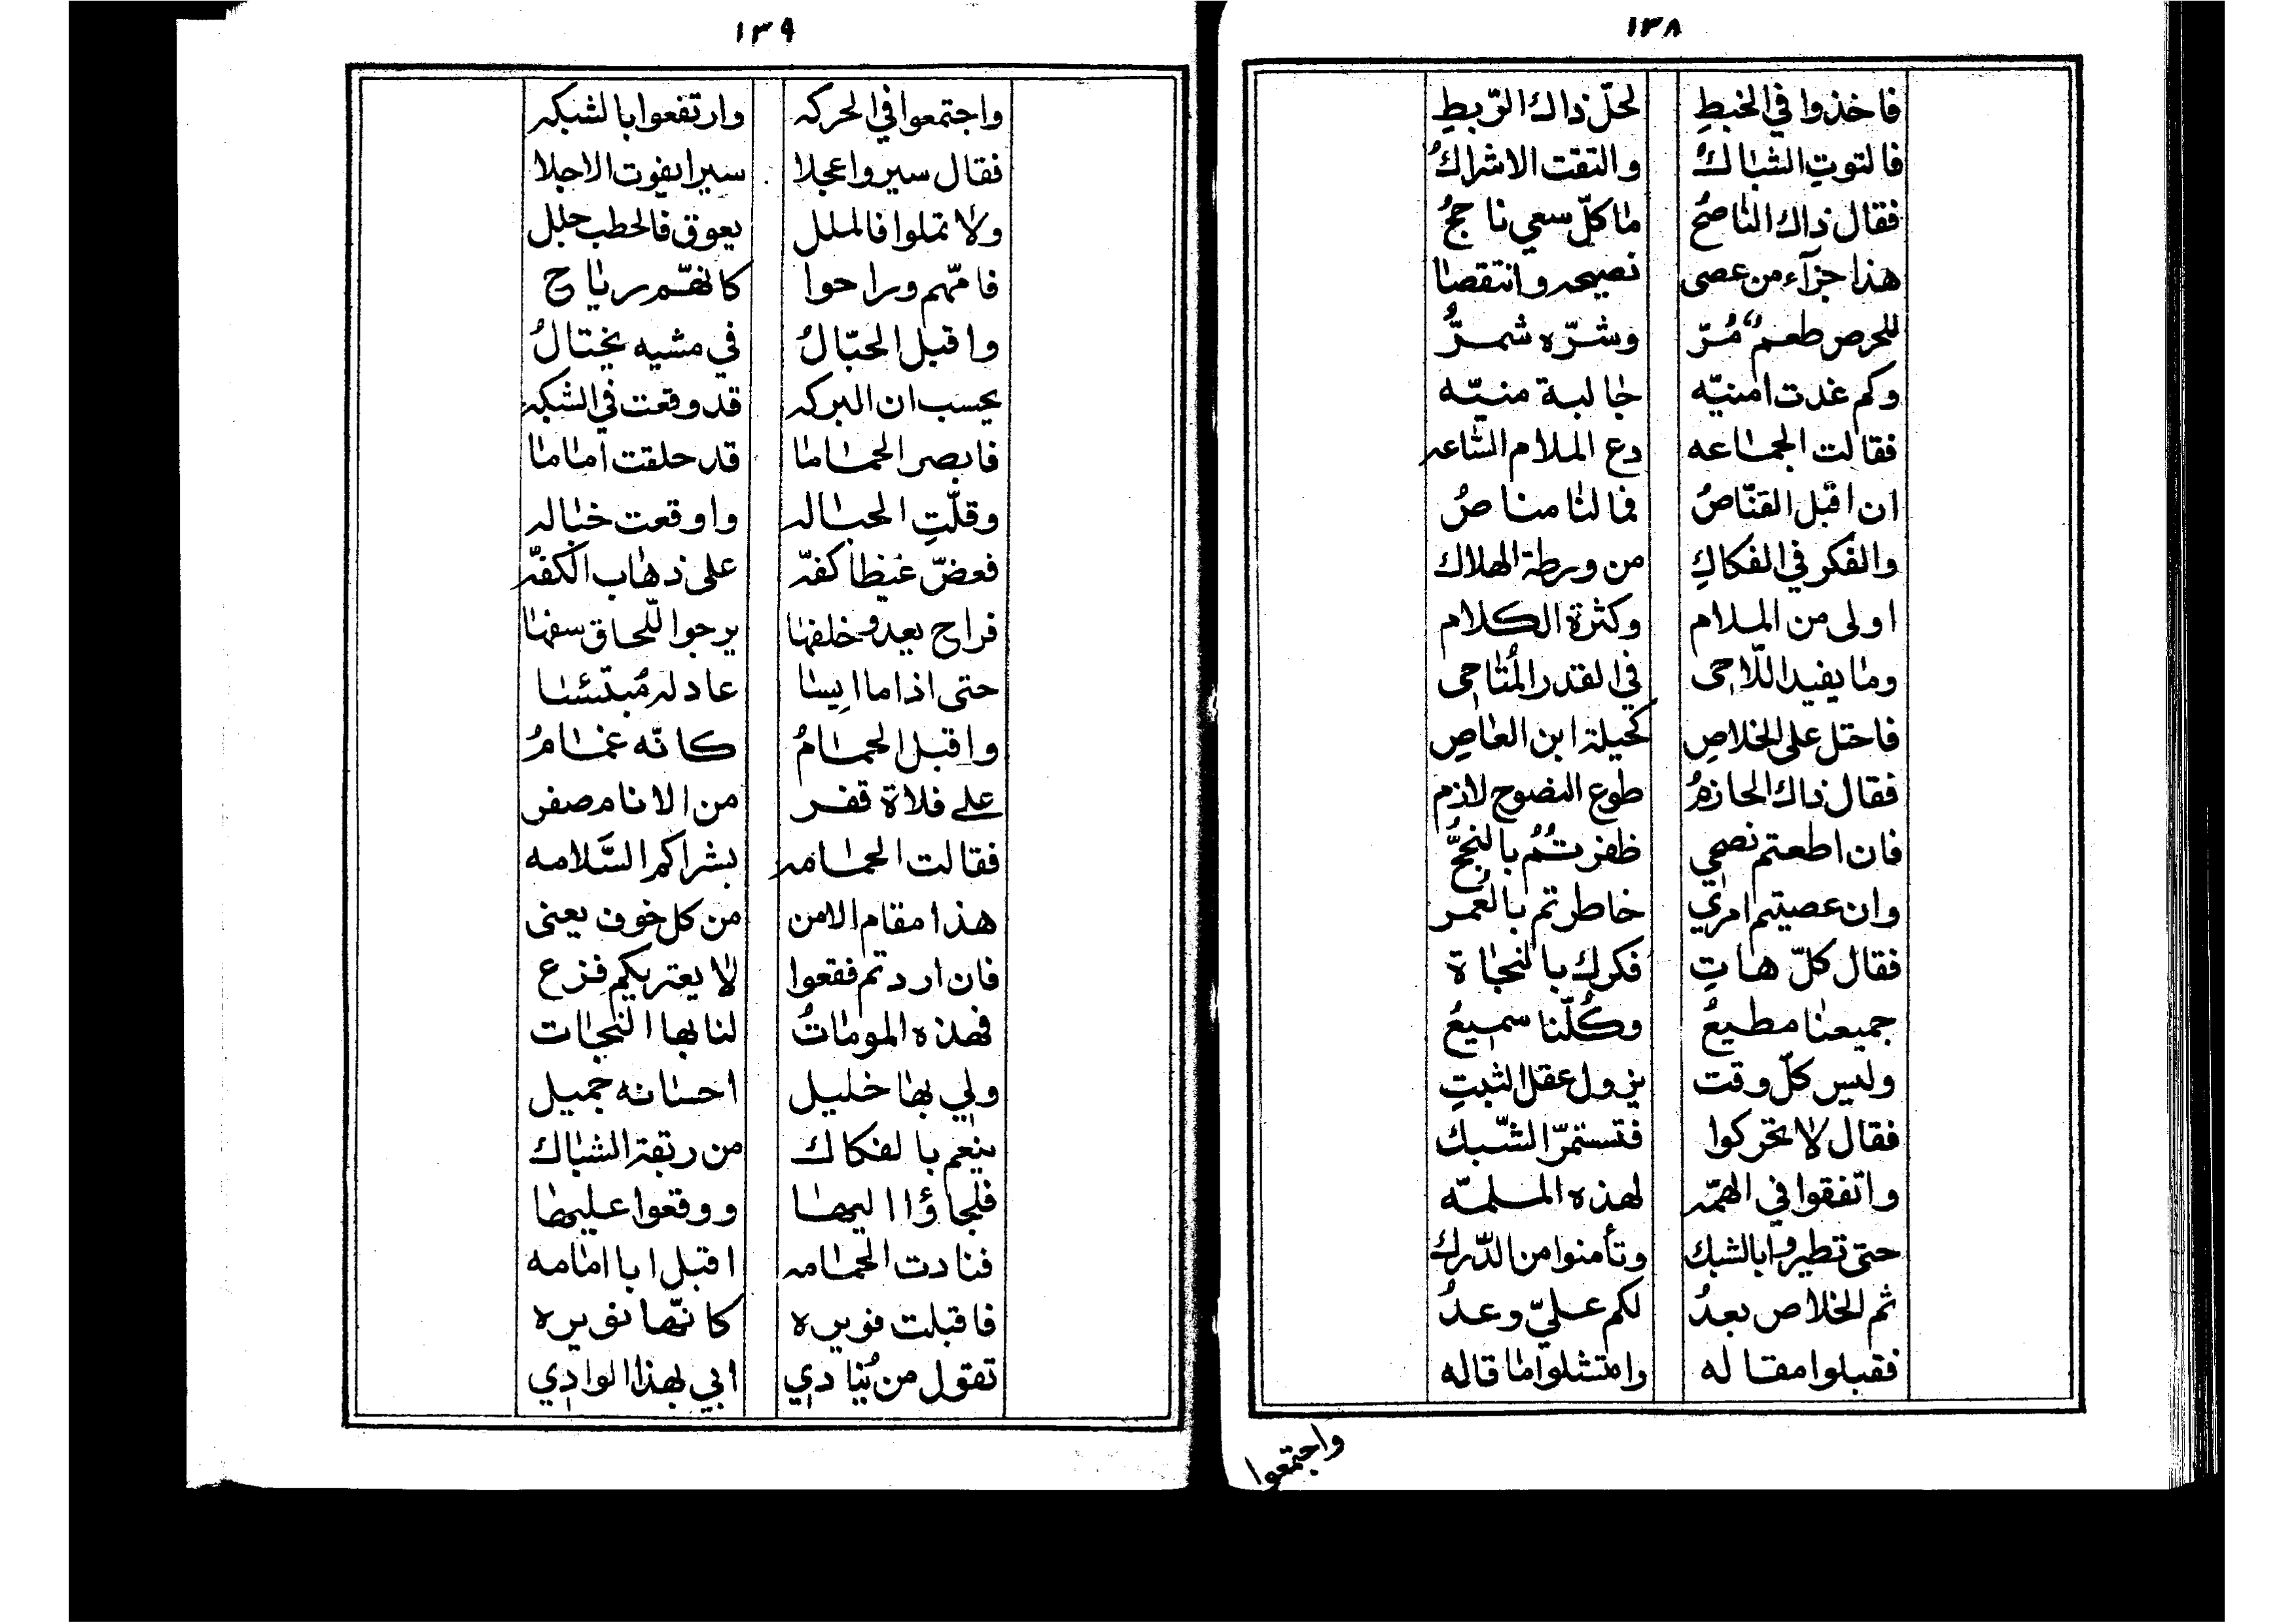 ١٣٨
فاخذوا في الخبطِ لحلّ ذاك الرّبطِ
فالتوتِ الشباكُ والتقت الاشراكُ
فقال ذاك الناصحُ ماكلّ سعي ناجحُ
هذا جزآء من عصى نصيحه وانتقصا
للحرص طعمٌ مُرّ وشرّه شمرُّ
وكم غدت امنيّه جالبة منيّه
فقالت الجماعه دع الملام الشاعه
ان اقبل القنّاصُ فمالنا مناصُ
والفكر في الفكاكِ من ورطة الهلاك
اولى من الملام وكثرة الكلام
وما يفيد اللّاحى في القدر المُتاحى
فاحتل على الخلاصِ كحيلة ابن العاصِ
فقال ذاك الحازمُ طوع النضوح لازم
فان اطعتم نصحي ظفرتُمُ بالنجُّحِ
وان عصيتم امري خاطرتم بالعُمر
فقال كلّ هاتِ فكرك بالنجاة
جميعنا مطيعُ وكُلّنا سميعُ
وليس كلّ وقت يزول عقل الثبتِ
فقال لا تحركوا فتستمرّ الشّبك
واتفقوا في الهمّه لهذه الملمّه
حتى تطيروا بالشبك وتأمنوا من الدّرك
ثم الخلاص بعدُ لكم عليّ وعدُ
فقبلوا مقاله وامتثلوا ما قاله
واجتمعوا
١٣٩
واجتمعوا في الحركه وارتفعوا بالشبكه
فقال سيروا عجلا سيرا يفوت الاجلا
ولا تملوا فالملل يعوق فالحطب جلل
فامّهم وراحوا كانهّم رياح
واقبل الحبّالُ في مشيه يختالُ
يحسب ان البركه قد وقعت في الشبكه
فابصر الحماما قد حلقت اماما
وقلّتِ الحباله واوقعت خباله
فعضّ غيظا كفّه على ذهاب الكفّه
فراح يعدو خلفها يرجوا اللّحاق سفها
حتى اذا ما ايسا عاد له مُبتئسا
واقبل الحمامُ كانّه غمامُ
على فلاة قفر من الانام صفر
فقالت الحمامه بشراكم السَّلامه
هذا مقام الامن من كل خوف يعنى
فان اردتم فقعوا لا يعتريكم فزع
فهذه الموماتُ لنا بها النجات
ولي بها خليل احسانه جميل
ينعم بالفكاك من ربقة الشباك
فلجاؤا اليها ووقعوا عليها
فنادت الحمامه اقبل ابا امامه
فاقبلت فويره كانّها نويره
تقول من يُنادي ابي بهذا الوادي